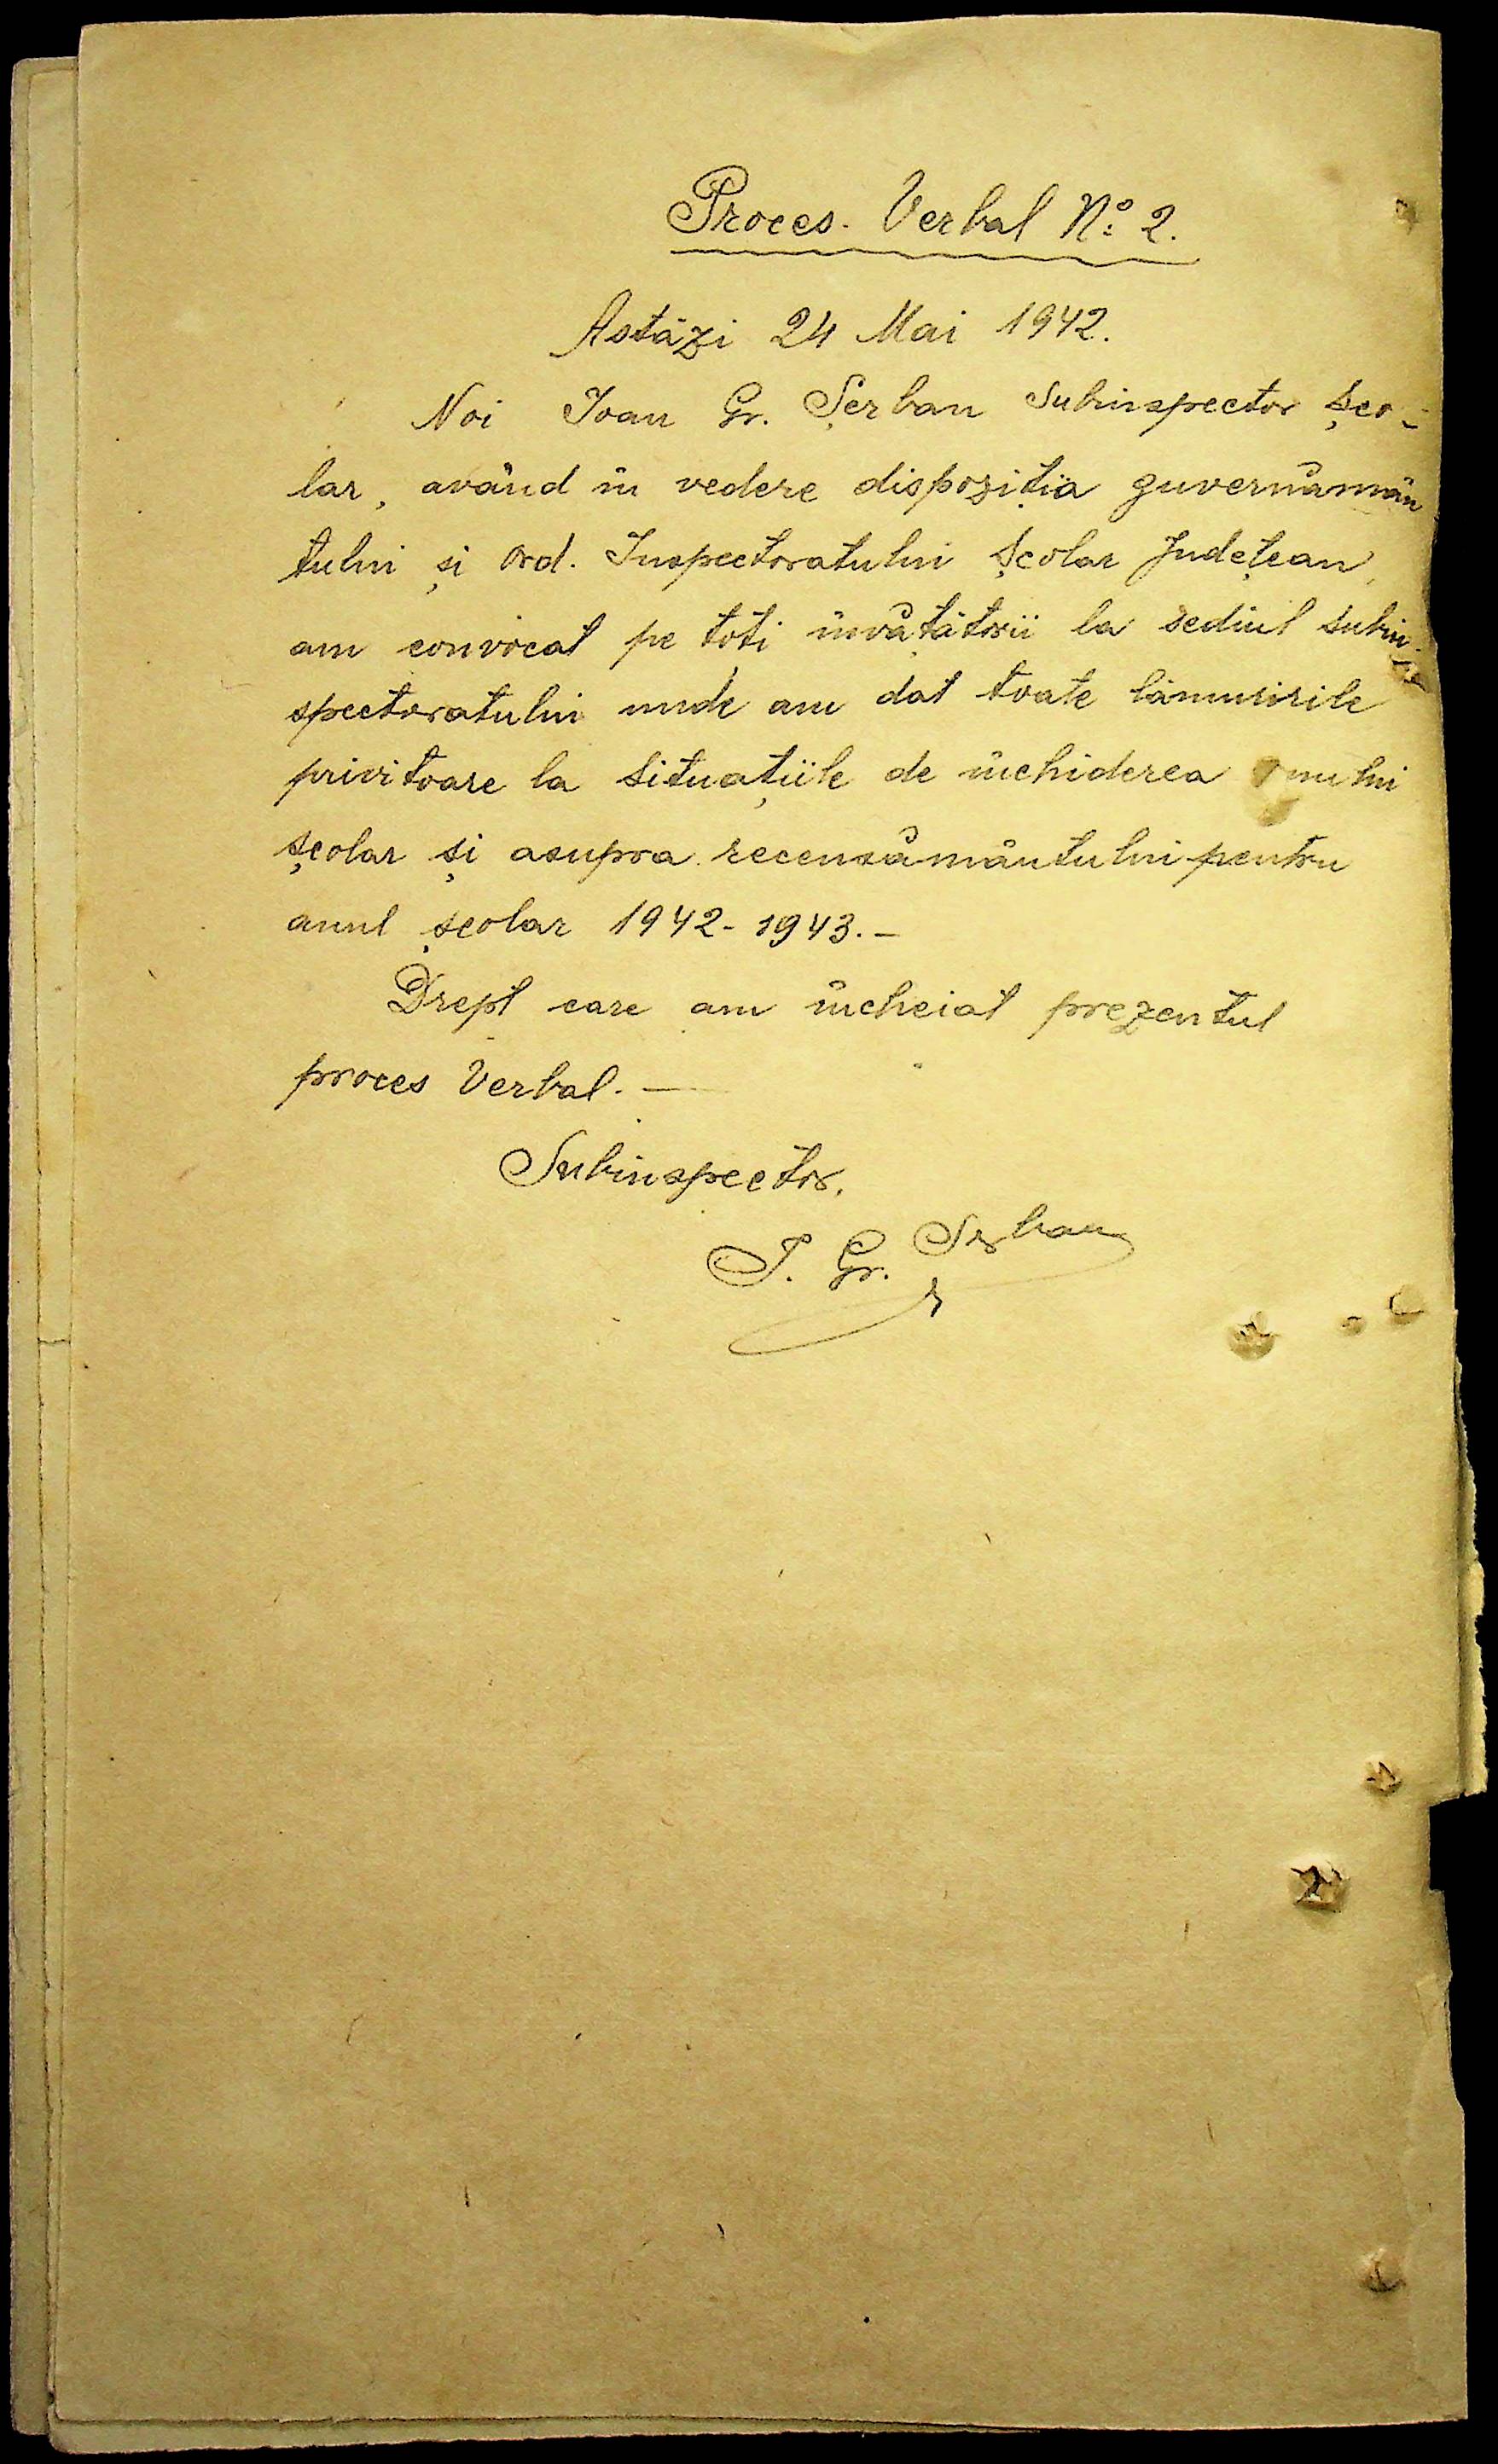 Proces. Verbal Nº 2.
Astăzi 24 Mai 1942.
Noi Ioan Gr. Șerban Subinspector șco-
lar, având în vedere dispoziția guvernămân
tului și ord. Inspectoratului Școlar Județean,
am convocat pe toți învățătorii la sediul subin-
spectoratului unde am dat toate lămuririle
privitoare la situațiile de închiderea anului
școlar și asupra recensământului pentru
anul școlar 1942-1943.—
Drept care am încheiat prezentul
proces Verbal.—
Subinspector,
I. Gr. Șerban